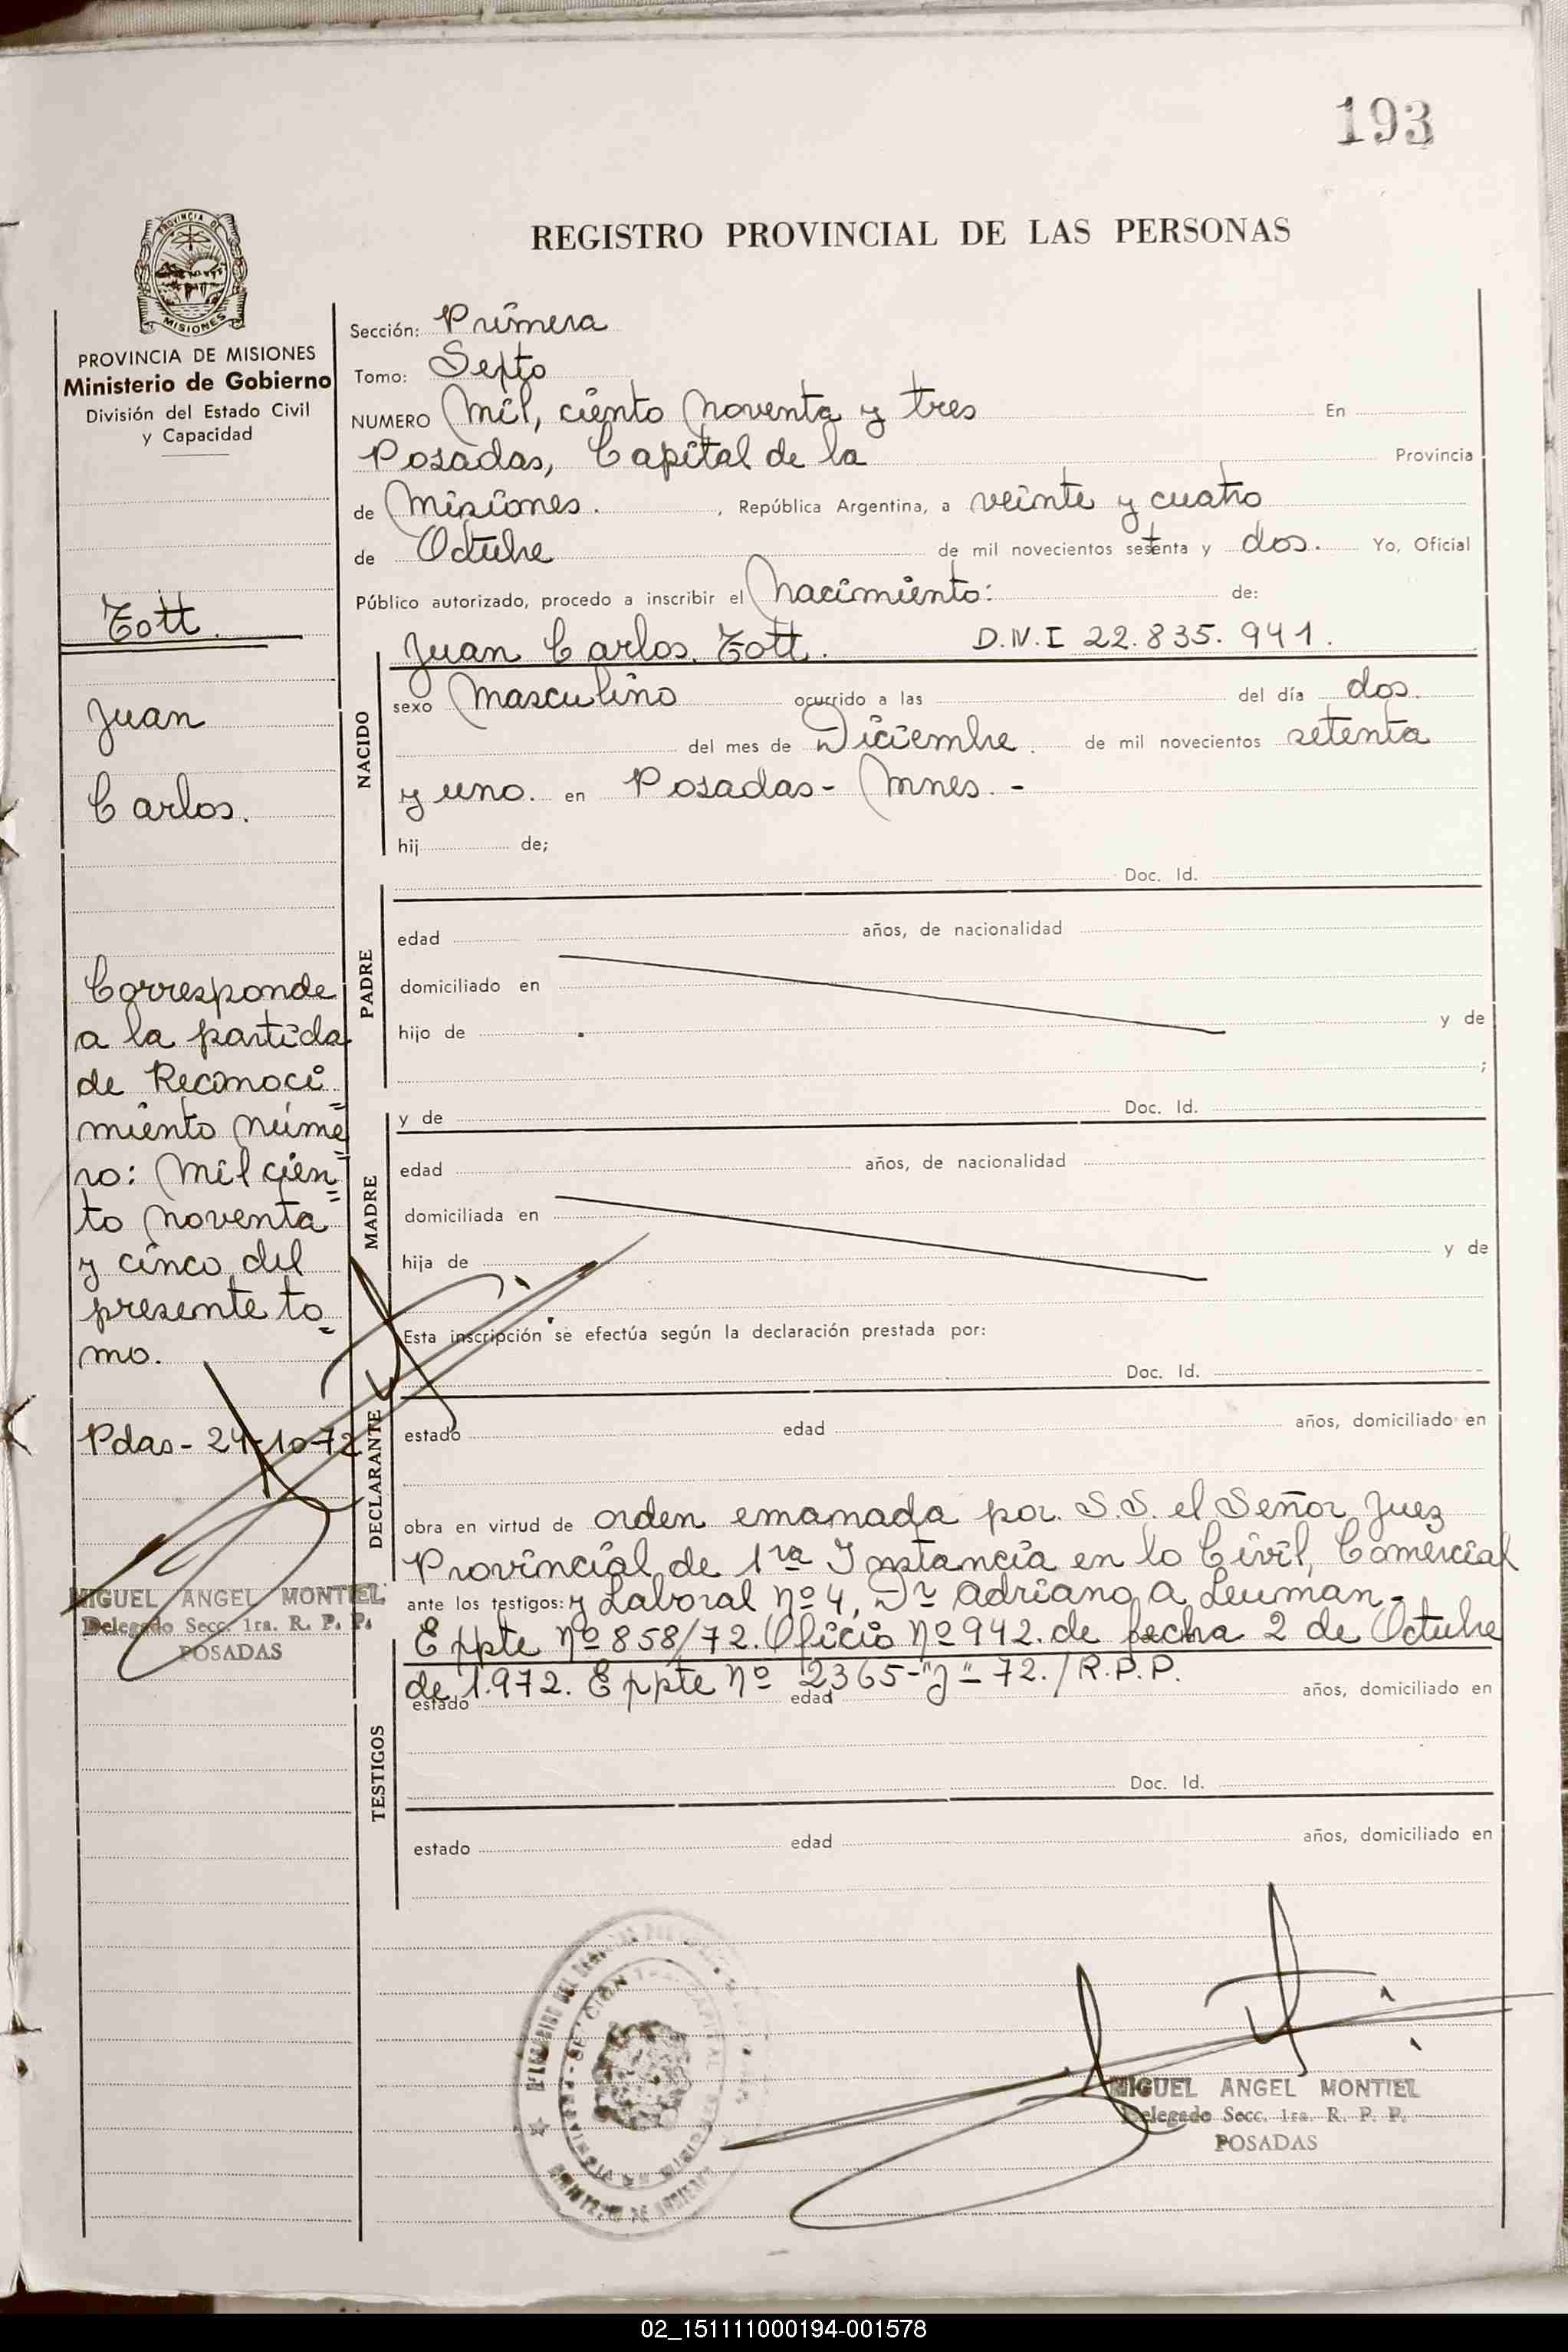 193
REGISTRO PROVINCIAL DE LAS PERSONAS
PROVINCIA DE
MISIONES
PROVINCIA DE MISIONES
Ministerio de Gobierno
División del Estado Civil
y Capacidad
Tott.
Juan
Carlos.
Corresponde
a la partida
de Reconoci=
miento núme=
ro: Mil cien=
to noventa
y cinco del
presente to=
mo.
Pdas - 24-10-72
MIGUEL ANGEL MONTIEL
Delegado Secc. 1ra. R. P. P.
POSADAS
Sección: Primera
Tomo: Septo
NUMERO Mil, ciento noventa y tres En
Posadas, Capital de la Provincia
de Misiones. , República Argentina, a veinte y cuatro
de Octubre de mil novecientos setenta y dos. Yo, Oficial
Público autorizado, procedo a inscribir el Nacimiento: de:
Juan Carlos. Tott. D.N.I 22.835.941.
NACIDO
sexo Masculino ocurrido a las del día dos.
del mes de Diciembre. de mil novecientos setenta
y uno. en Posadas - Mnes. -
hij de;
Doc. Id.
PADRE
edad años, de nacionalidad
domiciliado en
hijo de y de
;
y de Doc. Id.
MADRE
edad años, de nacionalidad
domiciliada en
hija de y de
Esta inscripción se efectúa según la declaración prestada por:
Doc. Id.
DECLARANTE
estado edad años, domiciliado en
obra en virtud de orden emanada por S.S. el Señor Juez
Provincial de 1ra Instancia en lo Civil, Comercial
ante los testigos: y Laboral nº 4, Dr Adriano A Leuman-
Eppte nº 858/72. Oficio nº 942. de fecha 2 de Octubre
de 1.972. Eppte nº 2365-"J"-72./R.P.P.
TESTIGOS
estado edad años, domiciliado en
Doc. Id.
estado edad años, domiciliado en
MIGUEL ANGEL MONTIEL
Delegado Secc. 1ra. R. P. P.
POSADAS
02_151111000194-001578